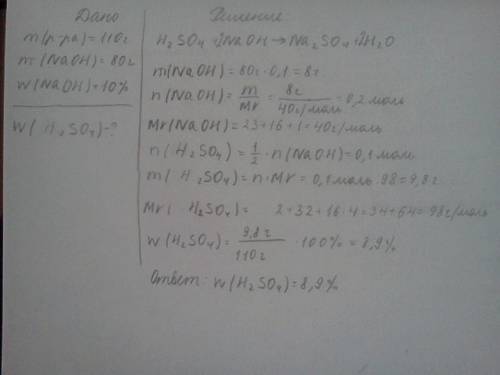 Дано
m(р-ра)=110г
m(NaOH)=80г
w(NaOH)=10%
w(H₂SO₄)-?
Решение:
H₂SO₄+2NaOH→Na₂SO₄+2H₂O
m(NaOH)=80г·0,1=8г
n(NaOH)=m/Mr=8г/40г/моль=0,2моль
Mr(NaOH)=23+16+1=40г/моль
n(H₂SO₄)=1/2·n(NaOH)=0,1моль
m(H₂SO₄)=n·Mr=0,1моль·98=9,8г
Mr(H₂SO₄)=2+32+16·4=34+64=98г/моль
w(H₂SO₄)=9,8г/110г·100%=8,9%
Ответ: w(H₂SO₄)=8,9%